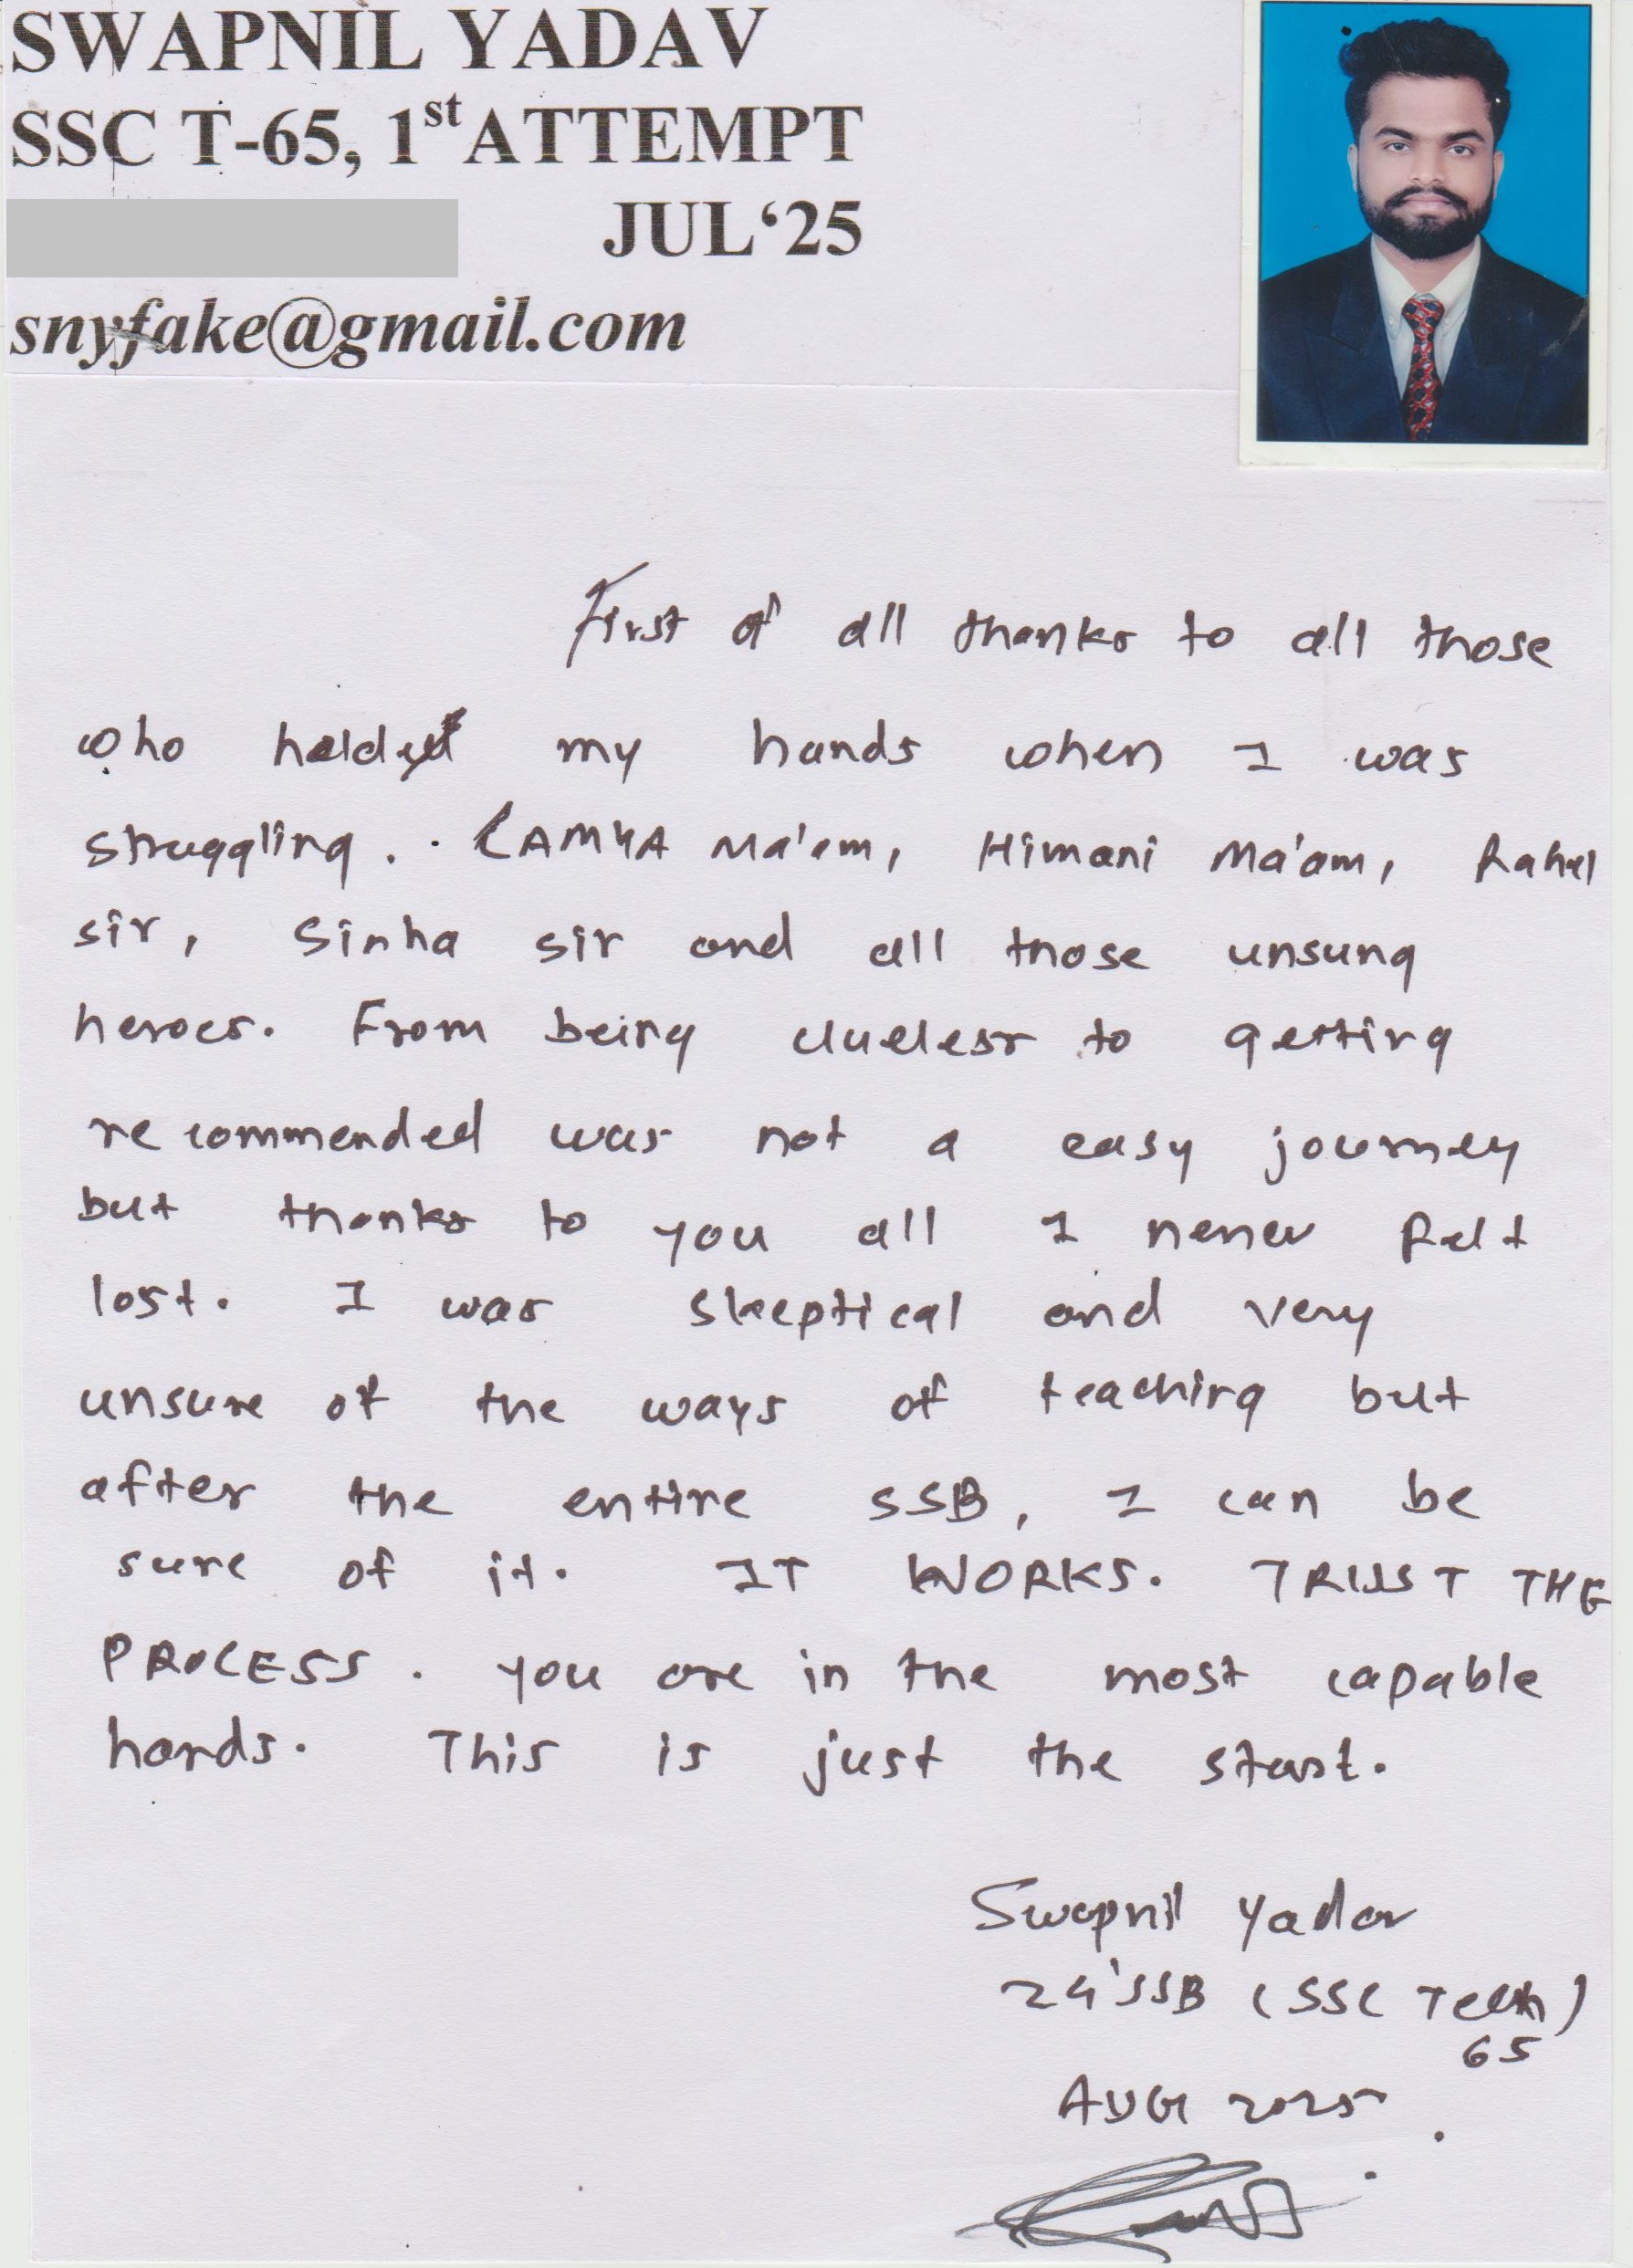 SWAPNIL YADAV
SSC T-65, 1st ATTEMPT
JUL‘25
snyfake@gmail.com
First of all thanks to all those
who holded my hands when I was
struggling. . RAMYA Ma'am, Himani Ma'am, Rahul
sir, Sinha sir and all those unsung
heroes. From being clueless to getting
recommended was not a easy journey
but thanks to you all I never felt
lost. I was skeptical and very
unsure of the ways of teaching but
after the entire SSB, I can be
sure of it. IT WORKS. TRUST THE
PROCESS. you are in the most capable
hands. This is just the start.
Swapnil Yadav
24'SSB (SSC Tech)
65
AUG 2025